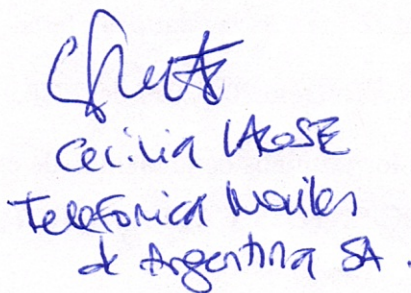 Cecilia
Telefónica Moviles
de Argentina SA.